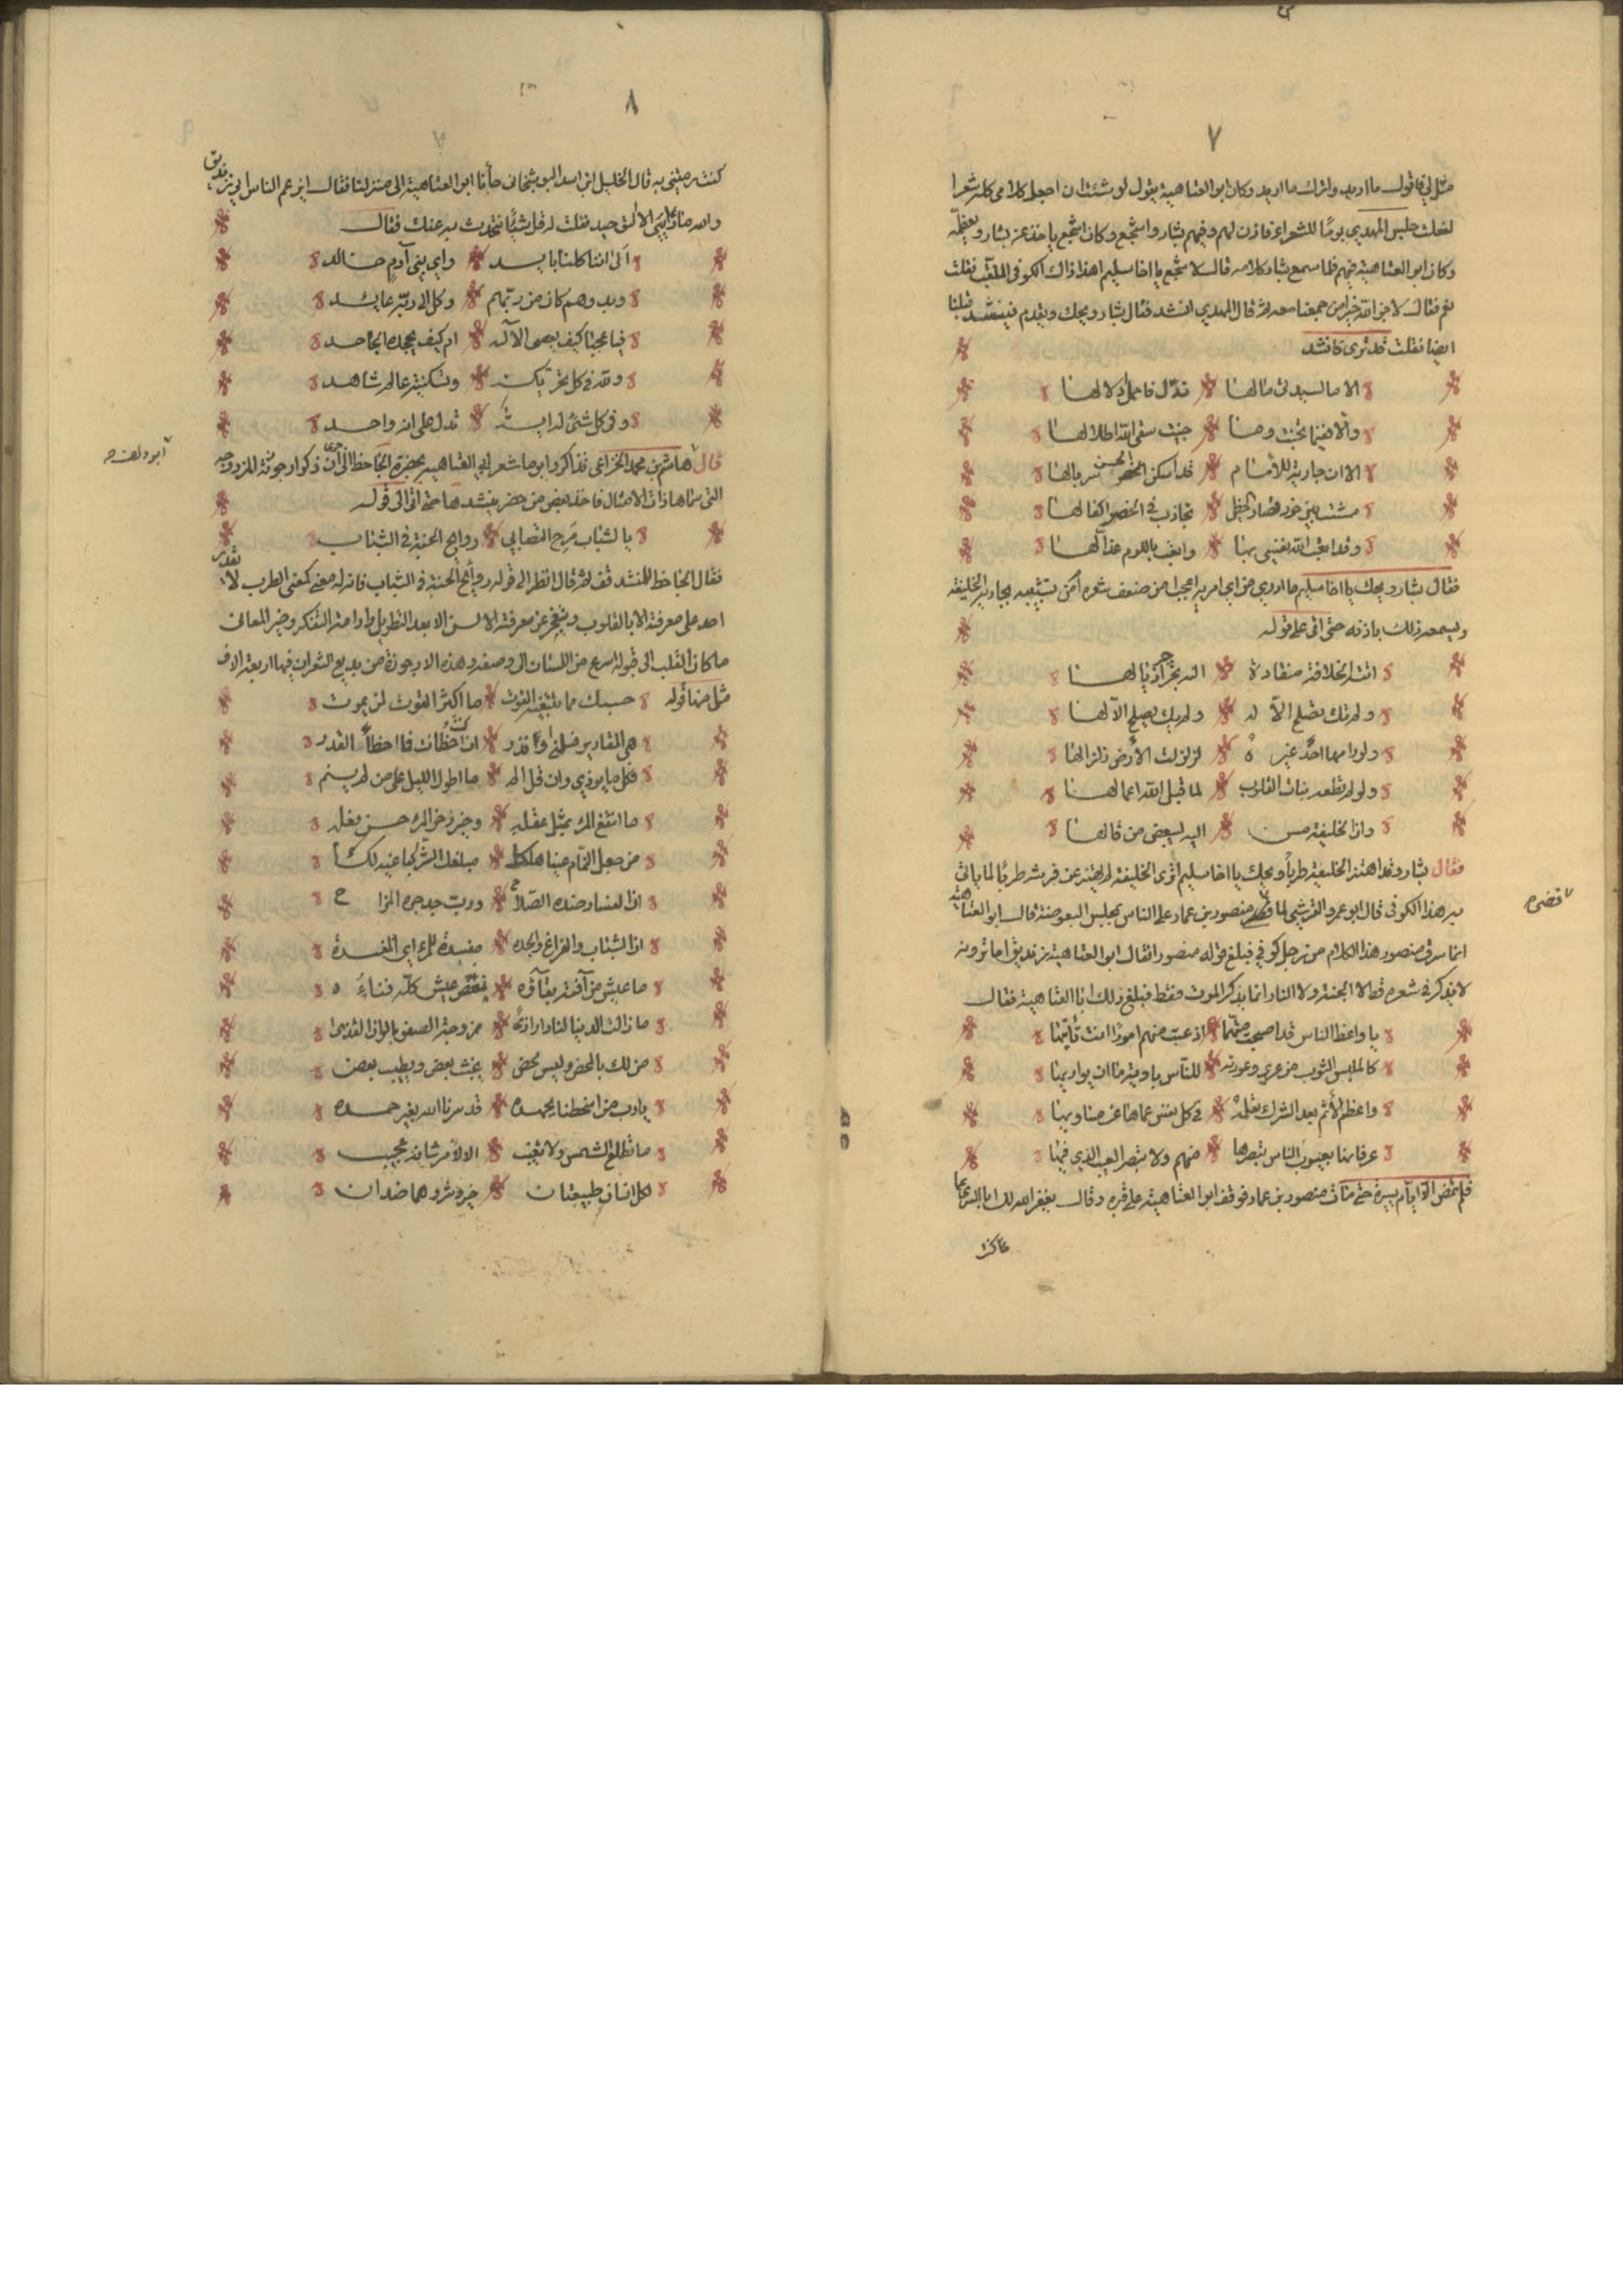 ٧
مثل لي فاقول ما اريد واترك ما اريد وكان ابو العتاهية يقول لو شئت ان اجعل كلامي كله شعرا
لفعلت جلس المهدي يومًا للشعراء فاذن لهم وفيهم بشار واشجع وكان اشجع ياخذ عن بشار ويعظمه
وكان ابو العتاهية فيهم فلما سمع بشار كلامه قال لاشجع يا اخا سليم اهذا ذاك الكوفى الملقب فقلت
نعم فقال لا جزا الله خيرا من جمعنا معه ثم قال المهدي انشد فقال بشار ويحك ويتقدم فينشد قبلنا
ايضا فقلت قد ترى فانشد
الا ما لسيدتى ما لها تدل فاحمل ادلالها
والا ففيما تجنت وما جنيت سقى الله اطلالها
الا ان جارية للامام قد اسكن الحسن سربالها
مشت بين حور قصار الخطى تجاذب فى الخصر اكفالها
وقد اتعب الله نفسي بها واتعب باللوم عذالها
فقال بشار ويحك يا اخا سليم ما ادري من اي امريه اعجب امن ضعف شعره امن تشبيبه بجارية الخليفة
ويسمعه ذلك باذنه حتى اتى على قوله
اتته الخلافة منقادة اليه تجرر اذيالها
ولم تك تصلح الا له ولم يك يصلح الا لها
ولو رامها احد غيره لزلزلت الأرض زلزالها
ولو لم تطعه بنات القلوب لما قبل الله اعمالها
وان الخليفة من اليه ليبغض من قالها
فقال بشار وقد اهتز الخليفة طرباً ويحك يا اخا سليم اترى الخليفة لم يهتز عن فرشه طربًا لما ياتى
به هذا الكوفى قال ابو عمرو القرشي لما قص منصور بن عمار على الناس بمجلس البعوضة قال ابو العتاهية
انما سرق منصور هذا الكلام من رجل كوفي فبلغ قوله منصور افقال ابو العتاهية زنديق اما ترونه
لا يذكر في شعره قط الا الجنة ولا النار انما يذكر الموت فقط فبلغ ذلك ابا العتاهية فقال
يا واعظ الناس قد اصبحت متهما اذ عبت منهم امورًا انت تأتيها
كالملبس الثوب من عري وعورته للناس بادية ما ان يواريها
واعظم الأثم بعد الشرك نعلمه في كل نفس عماها عن مساويها
عرفانها بعيوب الناس تبصرها منهم ولا تبصر العيب الذي فيها
فلم تمض الا ايام يسيرة حتى مات منصور بن عمار فوقف ابو العتاهية على قبره وقال يغفر الله لك ابا السرى ما
ما كنت
قضى
٨
كنت رميتني به قال الخليل ابن اسد البوشنجانى جاءنا ابو العتاهية الى منزلنا فقال زعم الناس اني زنديق
والله ما ديني الا التوحيد فقلت له قل شيئًا نتحدث به عنك فقال
الا اننا كلنا بايد واي بني آدم خالد
وبدوهم كان من ربهم وكل الى ربه عائد
فيا عجبا كيف يعصى الاله ام كيف يجحده الجاحد
ولله في كل تحريكة وتسكينة عالم شاهد
وفى كل شئ له اية تدل على انه واحد
قال هاشم بن محمد الخزاعى تذاكروا يوما شعر ابي العتاهية بحضرة الجاحظ الى أن جرى ذكر ارجوزته المزدوجه
التى سماها ذات الامثال فاخذ بعض من حضر ينشدها حتى اتى الى قوله
يا للشباب مرح التصابي روايح الجنة فى الشباب
فقال الجاحظ للمنشد قف ثم قال انظر الى قوله روايح الجنة فى الشباب فان له معنى كمعنى الطرب لا يقدر
احد على معرفة الا بالقلوب وتعجز عن معرفته الالسن الا بعد التطويل وادامة التفكر وخير المعانى
ما كان القلب الى قبوله اسرع من اللسان الى وصفه وهذه الارجوزة من بديع الشعر ان فيها اربعة الاف
مثل منها قوله حسبك مما تبتغيه القوت ما اكثر القوت لمن يموت
هي المقادير فلمني او فذر ان كنت اخطأت فما اخطأ القدر
فكل ما يوذي وان قل الم ما اطول الليل على من لم ينم
ما انتفع المرء بمثل عقله وخير ذخر المرء حسن فعله
من جعل النمام عينا هلكا مبلغك الشر كباغيه لكا
ان الفساد ضده الصلاح ورب جد جره المزاح
ان الشباب والفراغ والجده مفسدة للمرء اي المفسدة
ما عيش من آفته بقاؤه نغص عيش كله فناءُه
ما زالت الدنيا لنا دار اذى ممزوجة الصفو بالوان القذى
من لك بالمحض وليس محض يخبث بعض ويطيب بعض
يا رب من اسخطنا بجهده قد سرنا الله بغير حمده
ما تطلع الشمس ولا تغيب الا لأمر شانه عجيب
لكل انسان طبيعتان خير وشر وهما ضدان